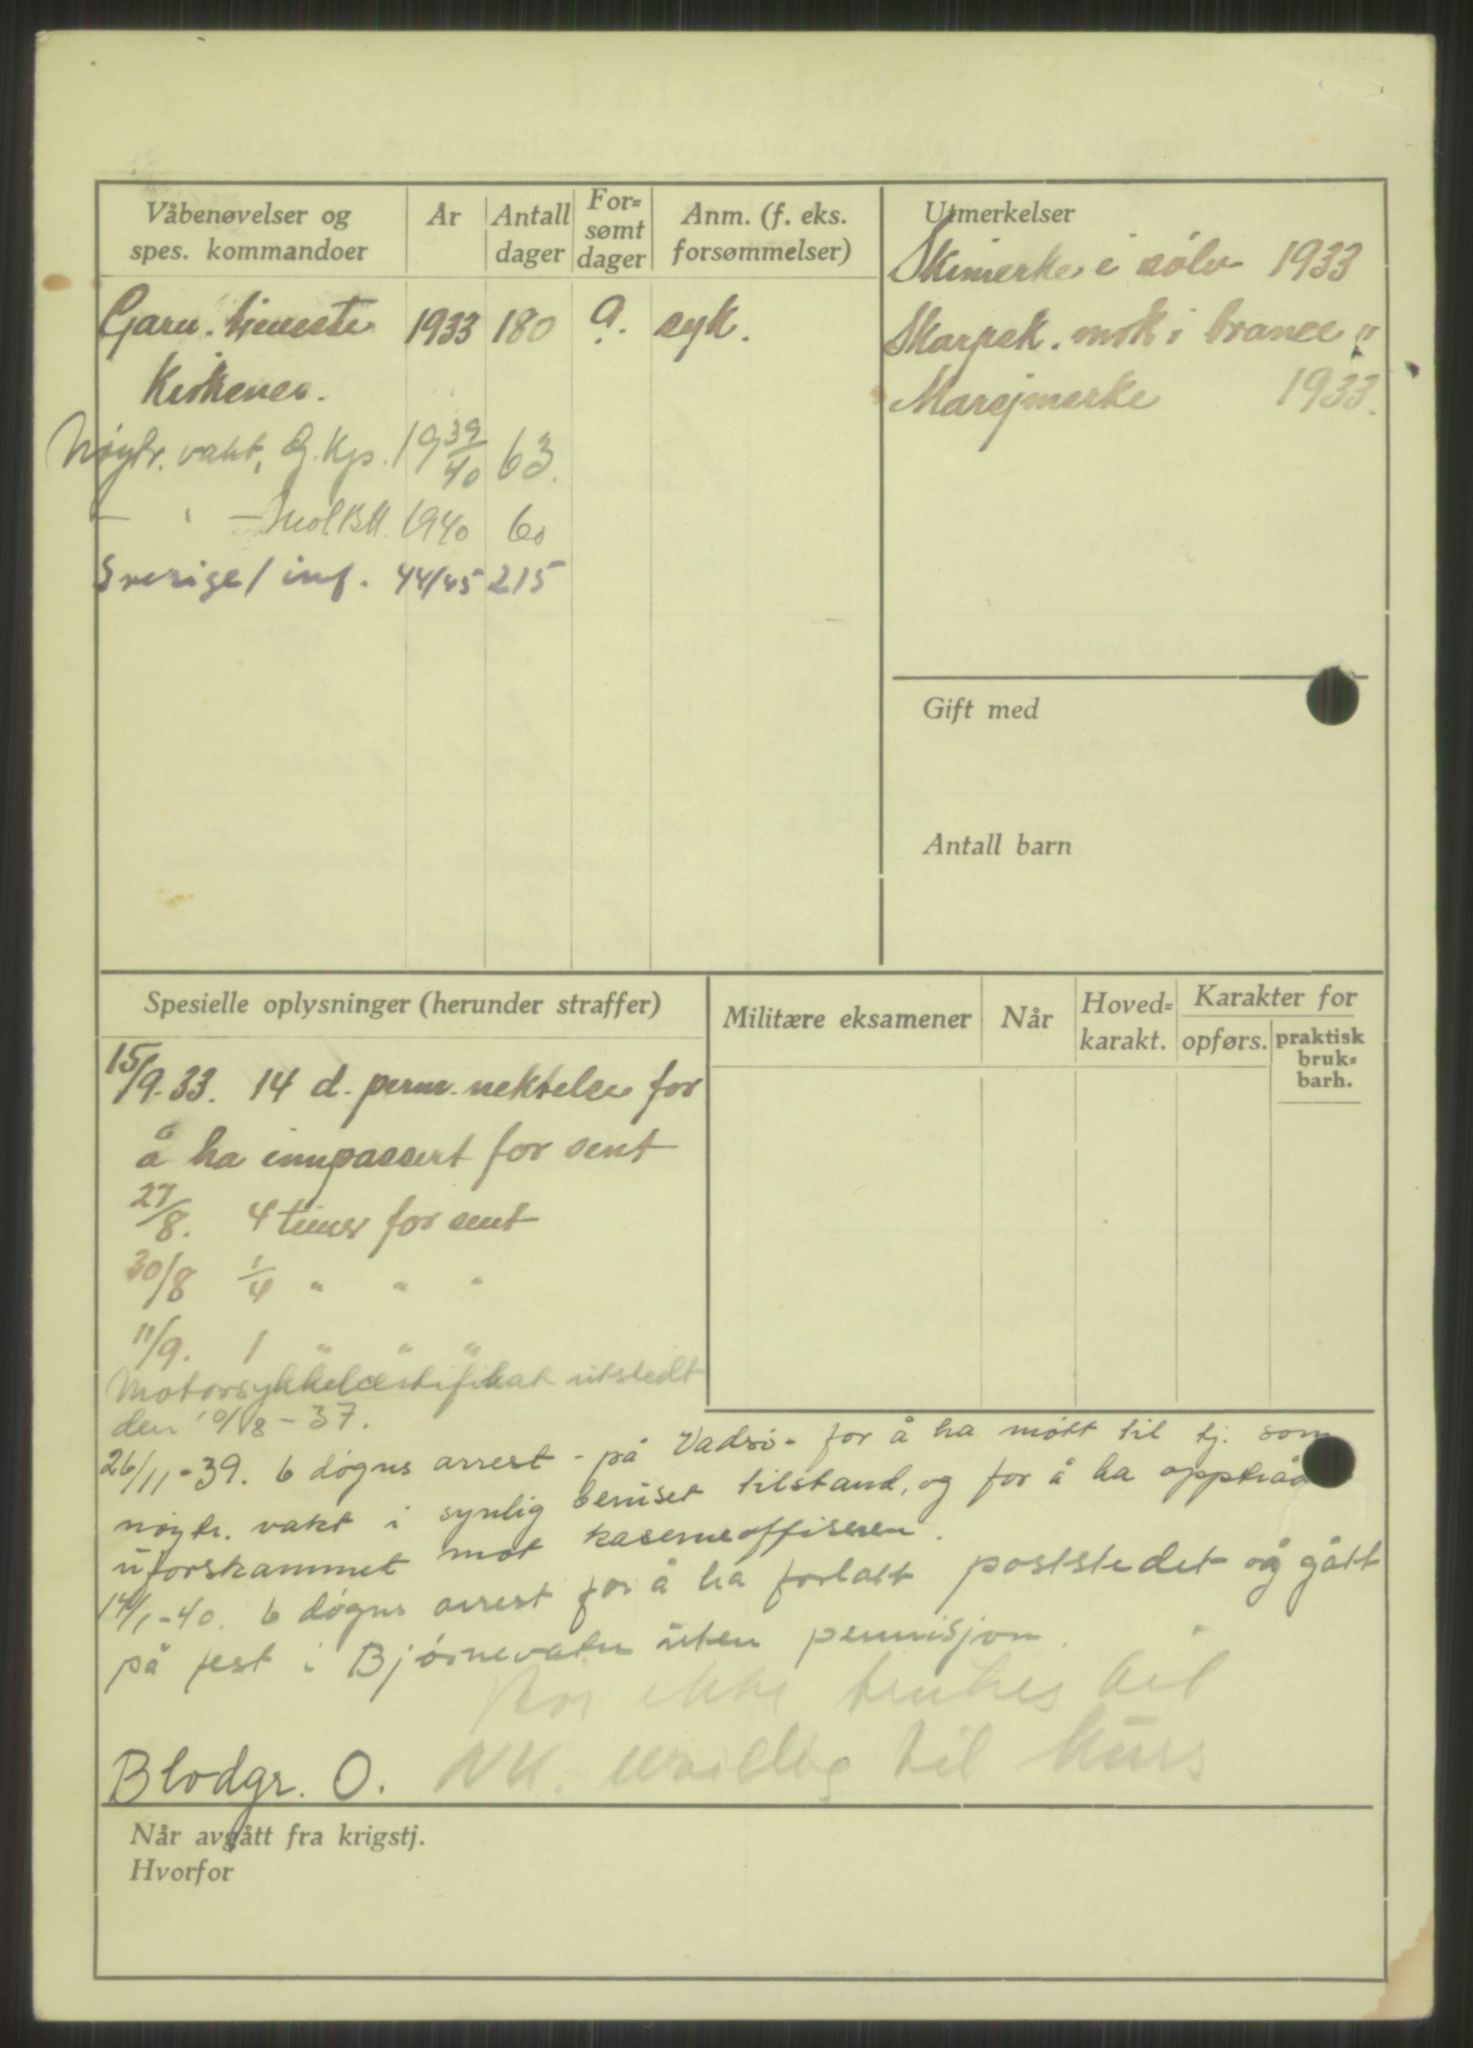 Våbenøvelser og
spes. kommandoer
År
Antall
dager
For=
sømt
dager
Anm. (f. eks.
forsømmelser)
Garn. tjeneste 1933 180 9. syk.
Kirkenes.
Nøytr. vakt, G. Kp. 1939/40 63.
— " — 1940 60
Sverige / inf. 44/45 215
Utmerkelser
Skimerke i sølv 1933
Skarpsk. mrk i bronce "
Marsjmerke 1933.
Gift med
Antall barn
Spesielle oplysninger (herunder straffer)
15/9-33. 14 d. perm. nektelse for
å ha innpassert for sent
27/8. 4 timer for sent
30/8 1/4 " " "
11/9. 1 " " "
Motorsykkelcertifikat utstedt
den 10/8-37.
26/11-39. 6 døgns arrest - på Vadsø - for å ha møtt til tj. som
nøytr. vakt i synlig beruset tilstand, og for å ha opptråd
uforskammet mot kaserneoffiseren.
14/1-40. 6 døgns arrest for å ha forlatt poststedet og gått
på fest i Bjørnevatn uten permisjon.
Bør ikke brukes til
NK. uvillig til kurs
Blodgr. O.
Militære eksamener
Når
Hoved=
karakt.
Karakter for
opførs.
praktisk
bruk=
barh.
Når avgått fra krigstj.
Hvorfor